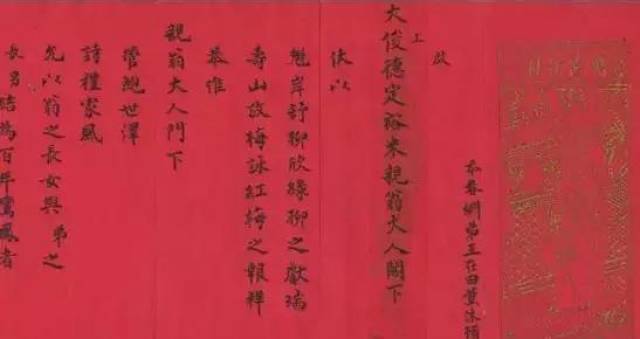 忝眷姻弟王在田薰沐頓
啟
上
大俊德定裕朱親翁大人閣下
伏以
魁岸舒柳欣綠柳之獻瑞
壽山放梅詠紅梅之報祥
恭維
親翁大人門下
管鮑世澤
詩禮家風
允以翁之長女與 弟之
長男結為百年鸞鳳者